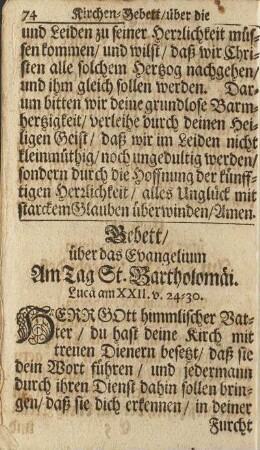 74 Kirchen-Gebett/über die
und Leiden zu seiner Herzlichkeit müs-
sen kommen/ und wilst/ daß wir Chri-
sten alle solchem Hertzog nachgehen/
und ihm gleich sollen werden. Dar-
um bitten wir deine grundlose Barm-
hertzigkeit/ verleihe durch deinen Hei-
ligen Geist/ daß wir im Leiden nicht
kleinmüthig/ noch ungedultig werden/
sondern durch die Hoffnung der künff-
tigen Herzlichkeit/ alles Unglück mit
starckem Glauben überwinden/ Amen.
Gebett/
über das Evangelium
Am Tag St. Bartholomäi.
Lucä am XXII. v. 24-30.
HERR GOtt himmlischer Vat-
ter/ du hast deine Kirch mit
treuen Dienern besetzt/ daß sie
dein Wort führen/ und jedermann
durch ihren Dienst dahin sollen brin-
gen/ daß sie dich erkennen/ in deiner
Furcht